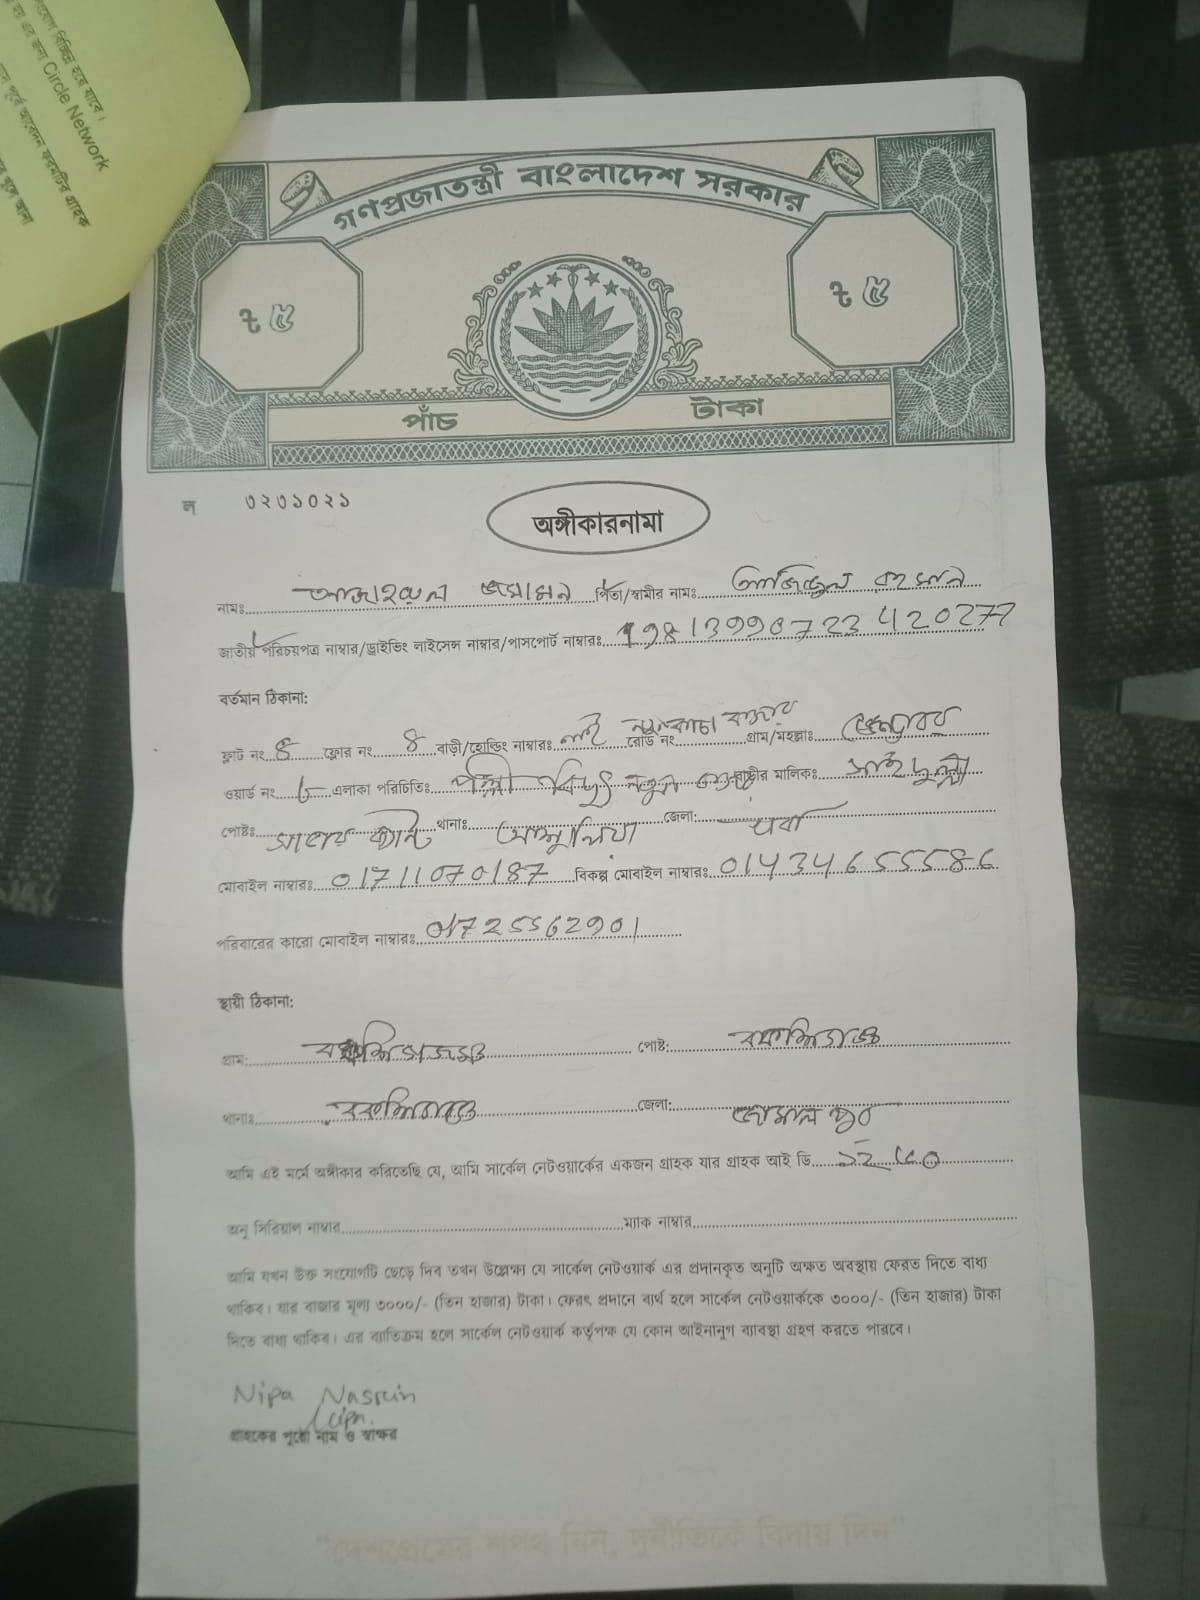 সংযোগ বিচ্ছিন্ন হয়ে যাবে।
এর জন্য Circle Network
পূর্বে আবেদন ফরমটির গ্রাহক
গণপ্রজাতন্ত্রী বাংলাদেশ সরকার
৳ ৫ ৳ ৫
পাঁচ টাকা
ল ৩২৩১০২১
অঙ্গীকারনামা
নামঃ পিতা/স্বামীর নামঃ আজিজুল রহমান
জাতীয় পরিচয়পত্র নাম্বার/ড্রাইভিং লাইসেন্স নাম্বার/পাসপোর্ট নাম্বারঃ
বর্তমান ঠিকানা:
ফ্লাট নং ৪ ফ্লোর নং ৪ বাড়ী/হোল্ডিং নাম্বারঃ নাই রোড নং গ্রাম/মহল্লাঃ
ওয়ার্ড নং ৫ এলাকা পরিচিতিঃ পল্লী বিদ্যুৎ বাড়ীর মালিকঃ
পোষ্টঃ সাভার ক্যান্ট থানাঃ আশুলিয়া জেলা: ঢাকা
মোবাইল নাম্বারঃ 01711070187 বিকল্প মোবাইল নাম্বারঃ 01434655586
পরিবারের কারো মোবাইল নাম্বারঃ
স্থায়ী ঠিকানা:
গ্রাম: পোষ্ট: বকশিগঞ্জ
থানাঃ বকশিগঞ্জ জেলা: জামালপুর
আমি এই মর্মে অঙ্গীকার করিতেছি যে, আমি সার্কেল নেটওয়ার্কের একজন গ্রাহক যার গ্রাহক আই ডি
অনু সিরিয়াল নাম্বার ম্যাক নাম্বার
আমি যখন উক্ত সংযোগটি ছেড়ে দিব তখন উল্লেক্ষ্য যে সার্কেল নেটওয়ার্ক এর প্রদানকৃত অনুটি অক্ষত অবস্থায় ফেরত দিতে বাধ্য
থাকিব। যার বাজার মূল্য ৩০০০/- (তিন হাজার) টাকা। ফেরৎ প্রদানে ব্যর্থ হলে সার্কেল নেটওয়ার্ককে ৩০০০/- (তিন হাজার) টাকা
দিতে বাধ্য থাকিব। এর ব্যতিক্রম হলে সার্কেল নেটওয়ার্ক কর্তৃপক্ষ যে কোন আইনানুগ ব্যবস্থা গ্রহণ করতে পারবে।
Nipa Nasrin
গ্রাহকের পুরো নাম ও স্বাক্ষর
"দেশপ্রেমের শপথ নিন, দুর্নীতিকে বিদায় দিন"